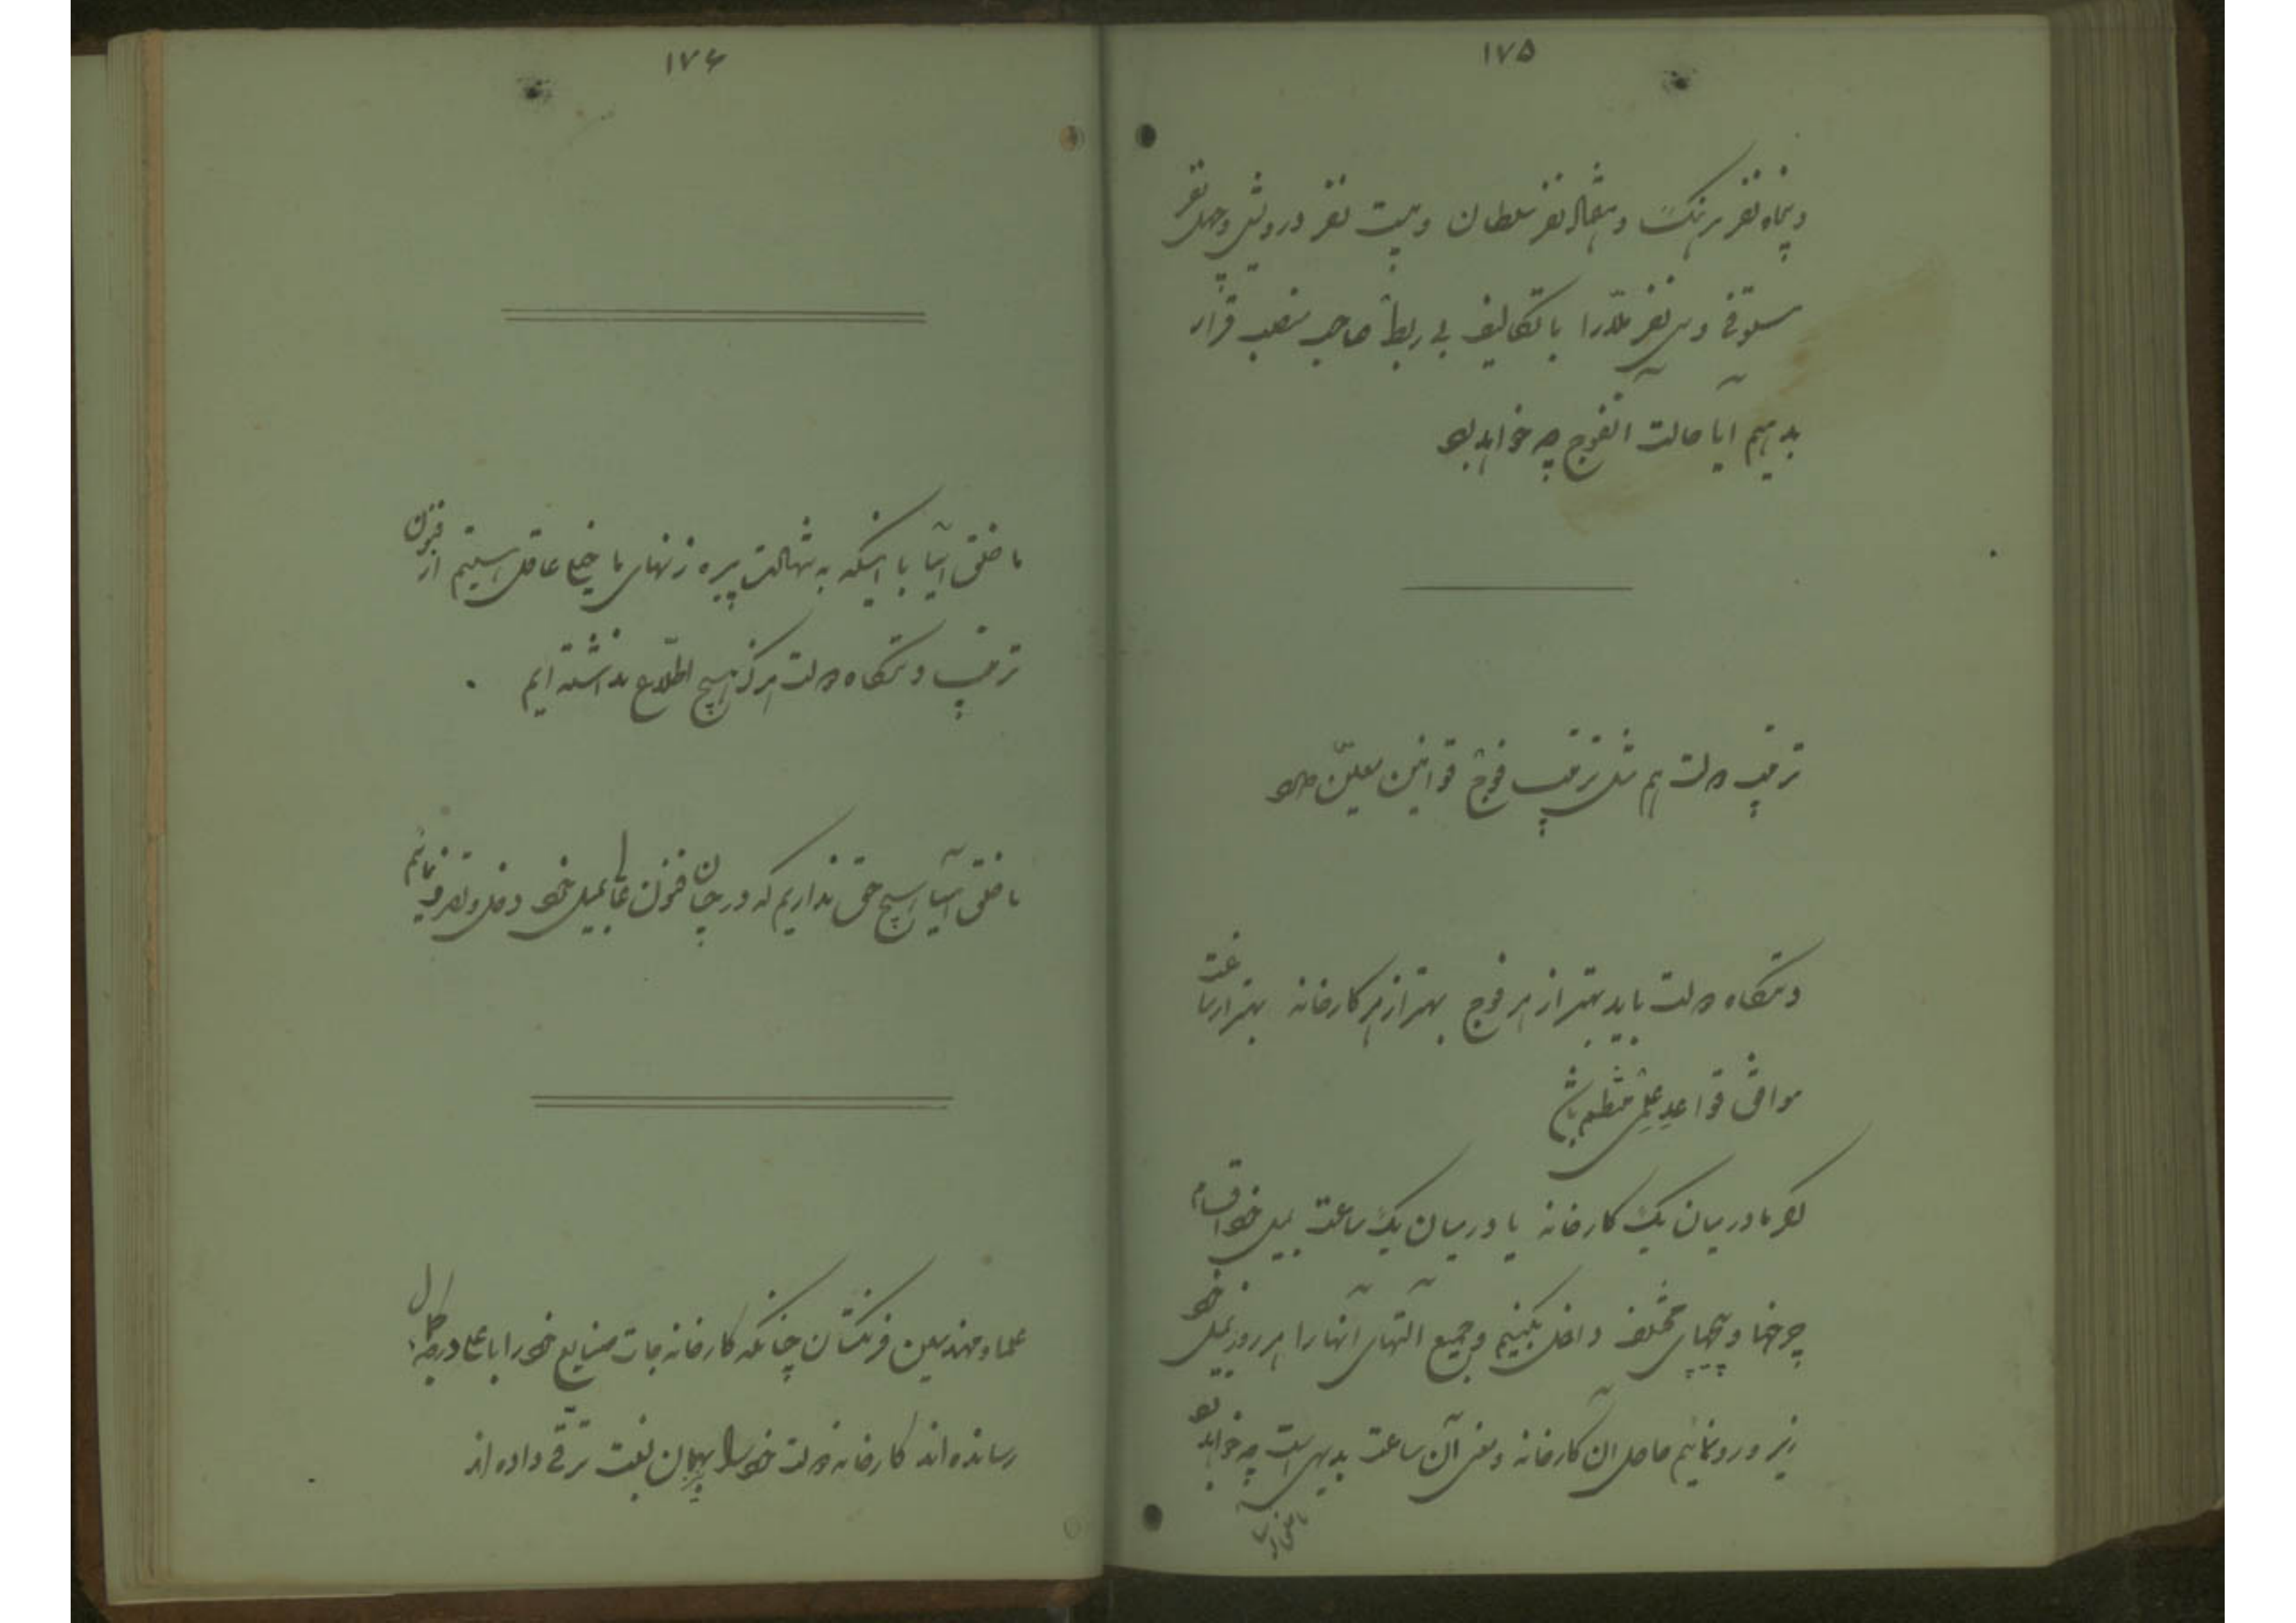 ۱۷۵
و پنجاه نفر سرهنگ و هشتاد نفر سلطان و بیست نفر درویش و چهل نفر
مستوفی و سی نفر ملّا را با تکالیف بی ربط صاحب منصب قرار
بدهیم آیا حالت آنفوج چه خواهد بود
ترتیب دولت هم مثل ترتیب فوج قوانین معیّن دارد
دستگاه دولت باید بهتر از هر فوج بهتر از هر کارخانه بهتر از ساعت
موافق قواعد علمی منظم باشد
اگر ما در میان یک کارخانه یا در میان یک ساعت بمیل خود اقسام
چرخها و پیچهای مختلف داخل بکنیم و جمیع آلتهای آنها را هر روز بمیل خود
زیر و رو نمائیم حاصل آن کارخانه و معنی آن ساعت بدیهی است چه خواهد بود
ما خلق آسیا
۱۷۶
ما خلق آسیا با اینکه به شهادت پیره زنهای ما خیلی عاقل هستیم از فنون
ترتیب دستگاه دولت هرگز هیچ اطّلاع نداشته ایم
ما خلق آسیا هیچ حق نداریم که در چنان فنون عالی بمیل خود دخل و تصرف نمائیم
علما و مهندسین فرنگستان چنانکه کارخانه جات صنایع خود را باعلی درجهٔ کمال
رسانده اند کارخانه دولت خود را بهمان نسبت ترقی داده اند